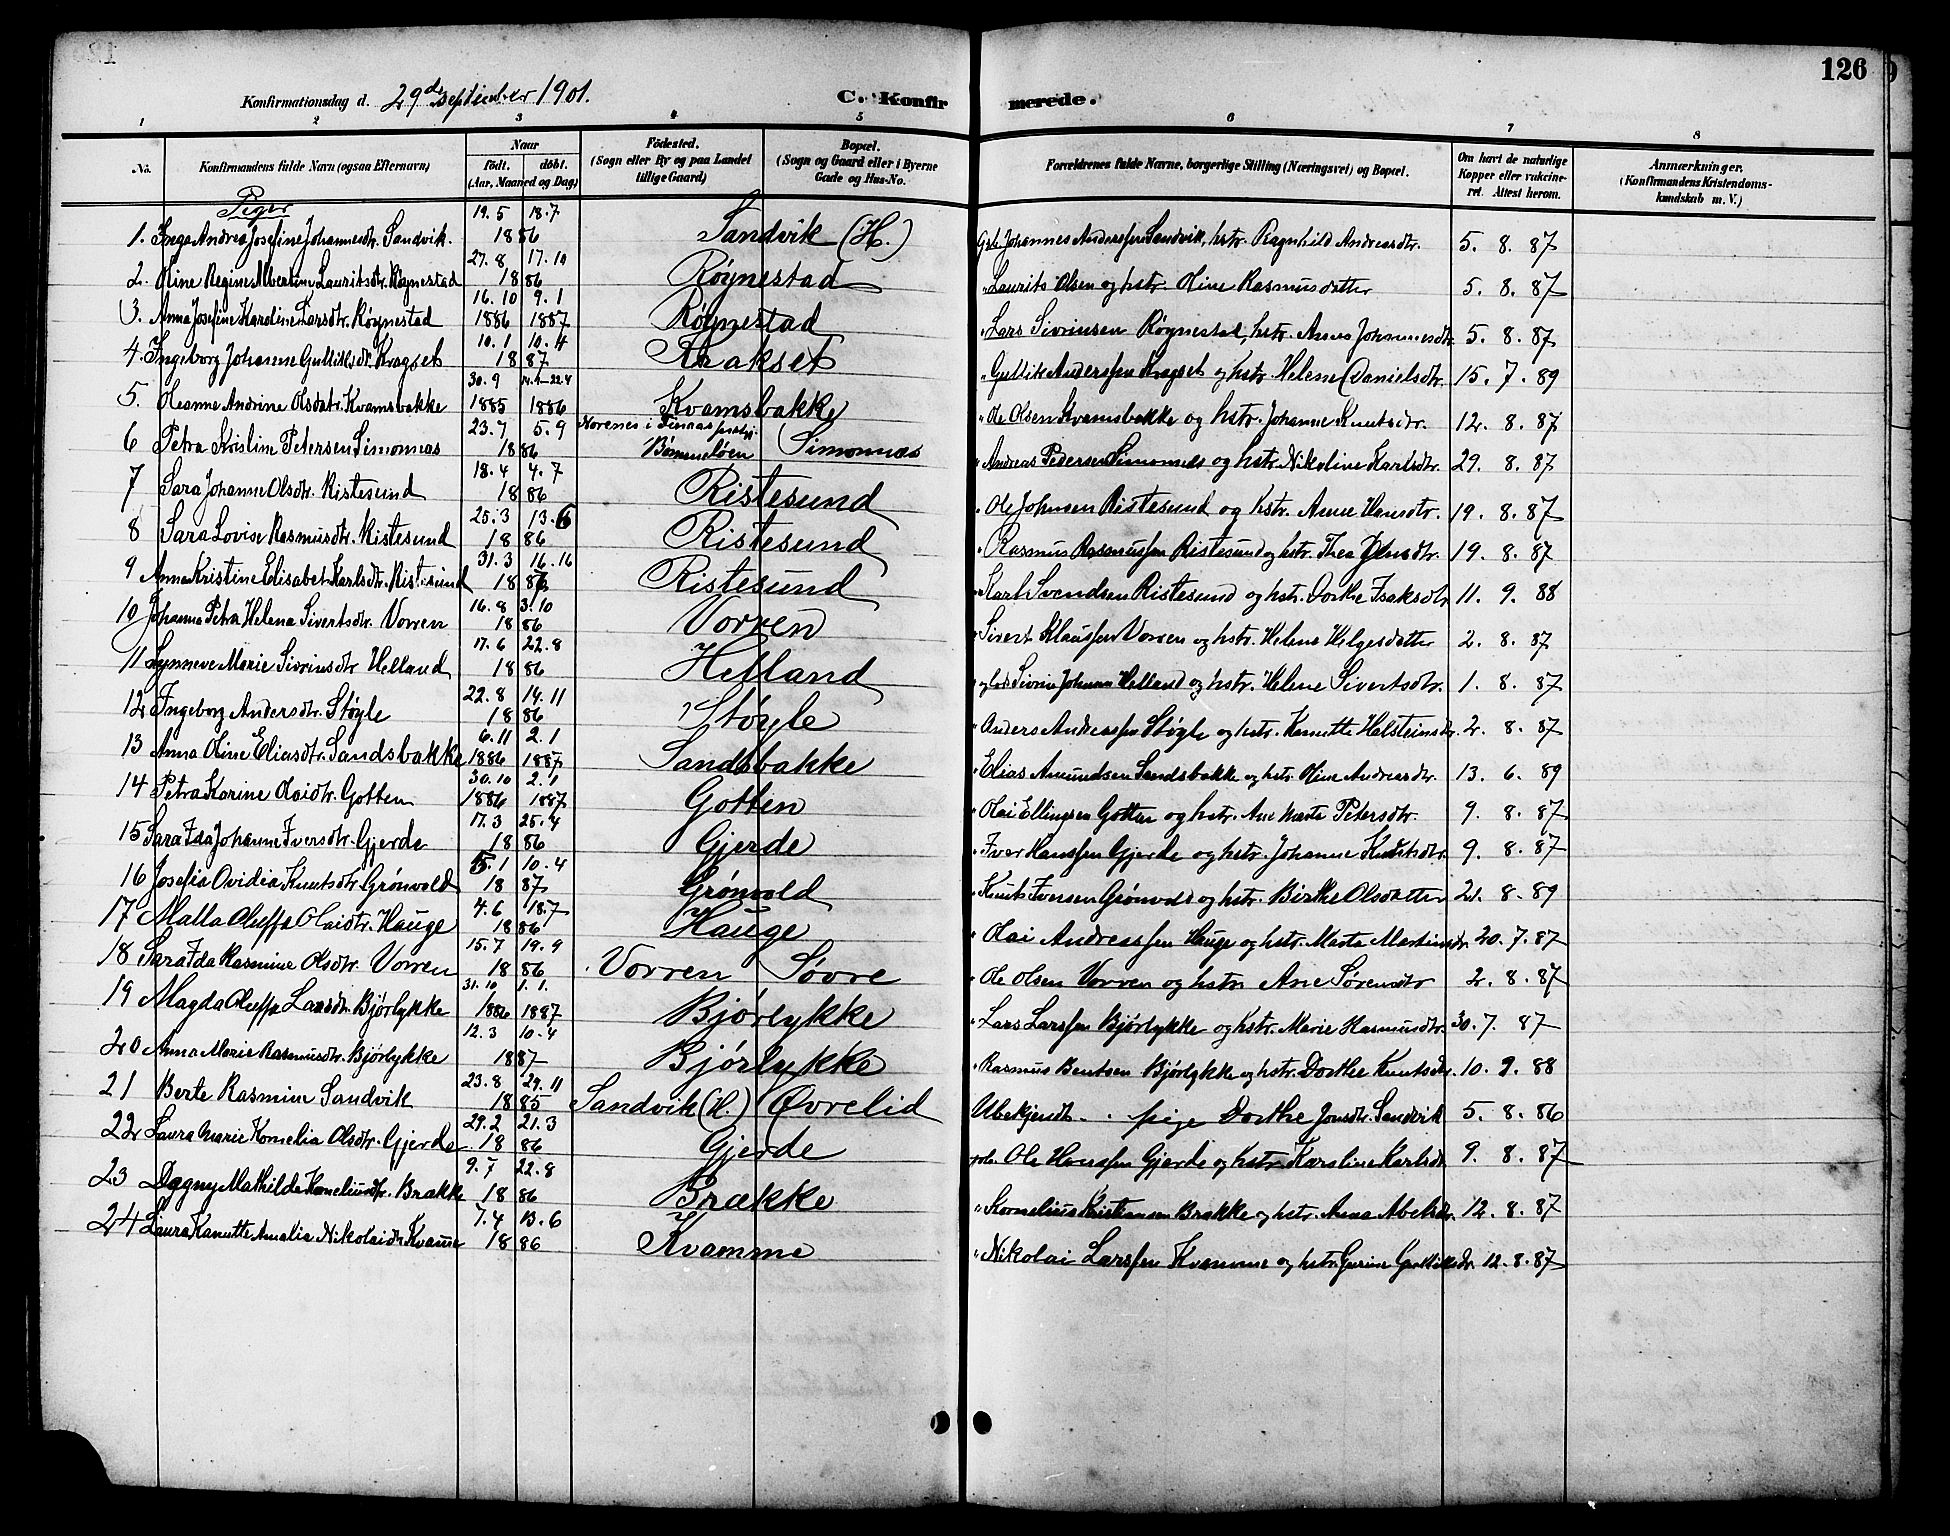 126
Konfirmationsdag d. 29de september 1901.
C. Konfirmerede.
1 2 3 4 5 6 7 8
No. Konfirmandens fulde Navn (ogsaa Efternavn) Naar født. døbt. (Aar, Maaned og Dag) Fødested. (Sogn eller By og paa Landet tillige Gaard) Bopæl. (Sogn og Gaard eller i Byerne Gade og Hus-No. Forældrenes fulde Navne, borgerlige Stilling (Næringsvei) og Bopæl. Om havt de naturlige Kopper eller vakcineret. Attest herom. Anmærkninger. (Konfirmandens Kristendomskundskab m. V.)
Piger
1. Inga Andrea Josefine Johannesdtr. Sandvik. 19.5 18.7 1886 Sandvik (H.) Gbr. Johannes Anderssen Sandvik, hstr. Ragnhild Andreasdtr. 5. 8. 87
2. Oline Regine Albertine Lauritsdtr. Røynestad 27.8 17.10 1886 Røynestad " Laurits Olsen og hstr. Oline Rasmusdatter 5. 8. 87
3. Anna Josefine Karoline Larsdtr. Røynestad 16.10 1886 9.1 1887 Røynestad " Lars Sivrinsen Røynestad, hstr. Anna Johannesdtr. 5. 8. 87
4. Ingeborg Johanne Gulliksdtr. Kragset 10.1 10.4 1887 Krakset " Gullik Anderssen Kragset og hstr. Helene Danielsdtr. 15. 7. 89
5. Oleanne Andrine Olsdatr. Kvamsbakke 30.9 1885 14.1-22.4 1886 Kvamsbakke " Ole Olsen Kvamsbakke og hstr. Johanne Knutsdtr. 12. 8. 87
6 Petra Kristine Petersen Simonnæs 23.7 5.9 1886 Norenes i Finaas prstgj. Bømmeløen Simonnæs " Andreas Pedersen Simonnæs og hstr. Nikoline Karlsdtr. 29. 8. 87
7 Sara Johanne Olsdtr. Ristesund 18.4 4.7 1886 Ristesund " Ole Johnsen Ristesund og hstr. Anne Hansdtr. 19. 8. 87
8 Sara Lovise Rasmusdtr. Ristesund 25.3 13.6 1886 Ristesund " Rasmus Rasmussen Ristesund og hstr. Thea Jensdtr. 19. 8. 87
9 Anna Kristine Elisabet Karlsdtr. Ristesund 31.3 16.16 1886 Ristesund " Karl Svendsen Ristesund og hstr. Dorthe Isaksdtr. 11. 9. 88
10 Johanna Petra Helena Sivertsdtr. Vorren 16.8 3.10 1886 Vorren " Sivert Klaussen Vorren og hstr. Helene Helgesdatter 2. 8. 87
11 Synneve Marie Sivrinsdtr. Helland 17.6 22.8 1886 Helland Sivrin Johnsen Helland og hstr. Helene Sivertsdtr. 1. 8. 87
12 Ingeborg Andersdtr. Støyle 22.8 14.11 1886 Støyle " Anders Andreassen Støyle og hstr. Kanutte Holsteinsdr. 2. 8. 87
13 Anna Oline Eliasdtr. Sandsbakke 6.11 1886 2.1 1887 Sandsbakke " Elias Amundsen Sandsbakke og hstr. Oline Andreasdtr. 13. 6. 89
14 Petra Karine Olaidtr. Gotten 30.10 1886 2.1 1887 Gotten " Olai Ellingsen Gotten og hstr. Ane Marta Petersdtr. 9. 8. 87
15 Sara Ida Johanne Iversdtr. Gjerde 17.3 25.4 1886 Gjerde " Iver Hanssen Gjerde og hstr. Johanne Knutsdtr. 9. 8. 87
16 Josefia Ovidia Knutsdtr. Grønvold 15.1 10.4 1887 Grønvold " Knut Iversen Grønvold og hstr. Birthe Olsdatter 2. 8. 89
17 Malla Oluffa Olaidtr. Hauge 4.6 18.7 1886 Hauge " Olai Andreassen Hauge og hstr. Marta Martinsdr. 20. 7. 87
18 Sara Ida Rasmine Olsdtr. Vorren 15.7 19.9 1886 Vorren Søvre " Ole Olsen Vorren og hstr. Ane Sørensdtr 2. 8. 87
19 Magda Oluffa Larsdtr. Bjørlykke 31.10 1886 1.1. 1887 Bjørlykke " Lars Larssen Bjørlykke og hstr. Marie Rasmusdtr. 30. 7. 87
20 Anna Marie Rasmusdtr. Bjørlykke 12.3 10.4 1887 Bjørlykke " Rasmus Bentsen Bjørlykke og hstr. Dorthe Knutsdtr. 10. 9. 88
21 Berte Rasmine Sandvik 23.8 29.11 1885 Sandvik (H.) Øvrelid Ubekjendt. . pige Dorthe Jonsdtr. Sandvik 5. 8. 86
22 Laura Marie Kornelia Olsdtr. Gjerde 29.2 21.3 1886 Gjerde Ole Hanssen Gjerde og hstr. Karoline Karlsdtr. 9. 8. 87
23 Dagny Mathilde Korneliusdtr. Brække 9.7 22.8 1886 Brække " Kornelius Kristiansen Brække og hstr. Anna Abelsdr. 12. 8. 87
24 Laura Kanutte Amalia Nikolaidtr. Kvamme 7.4 13.6 1886 Kvamme " Nikolai Larssen Kvamme og hstr. Gurine Gulliksdr. 12. 8. 87